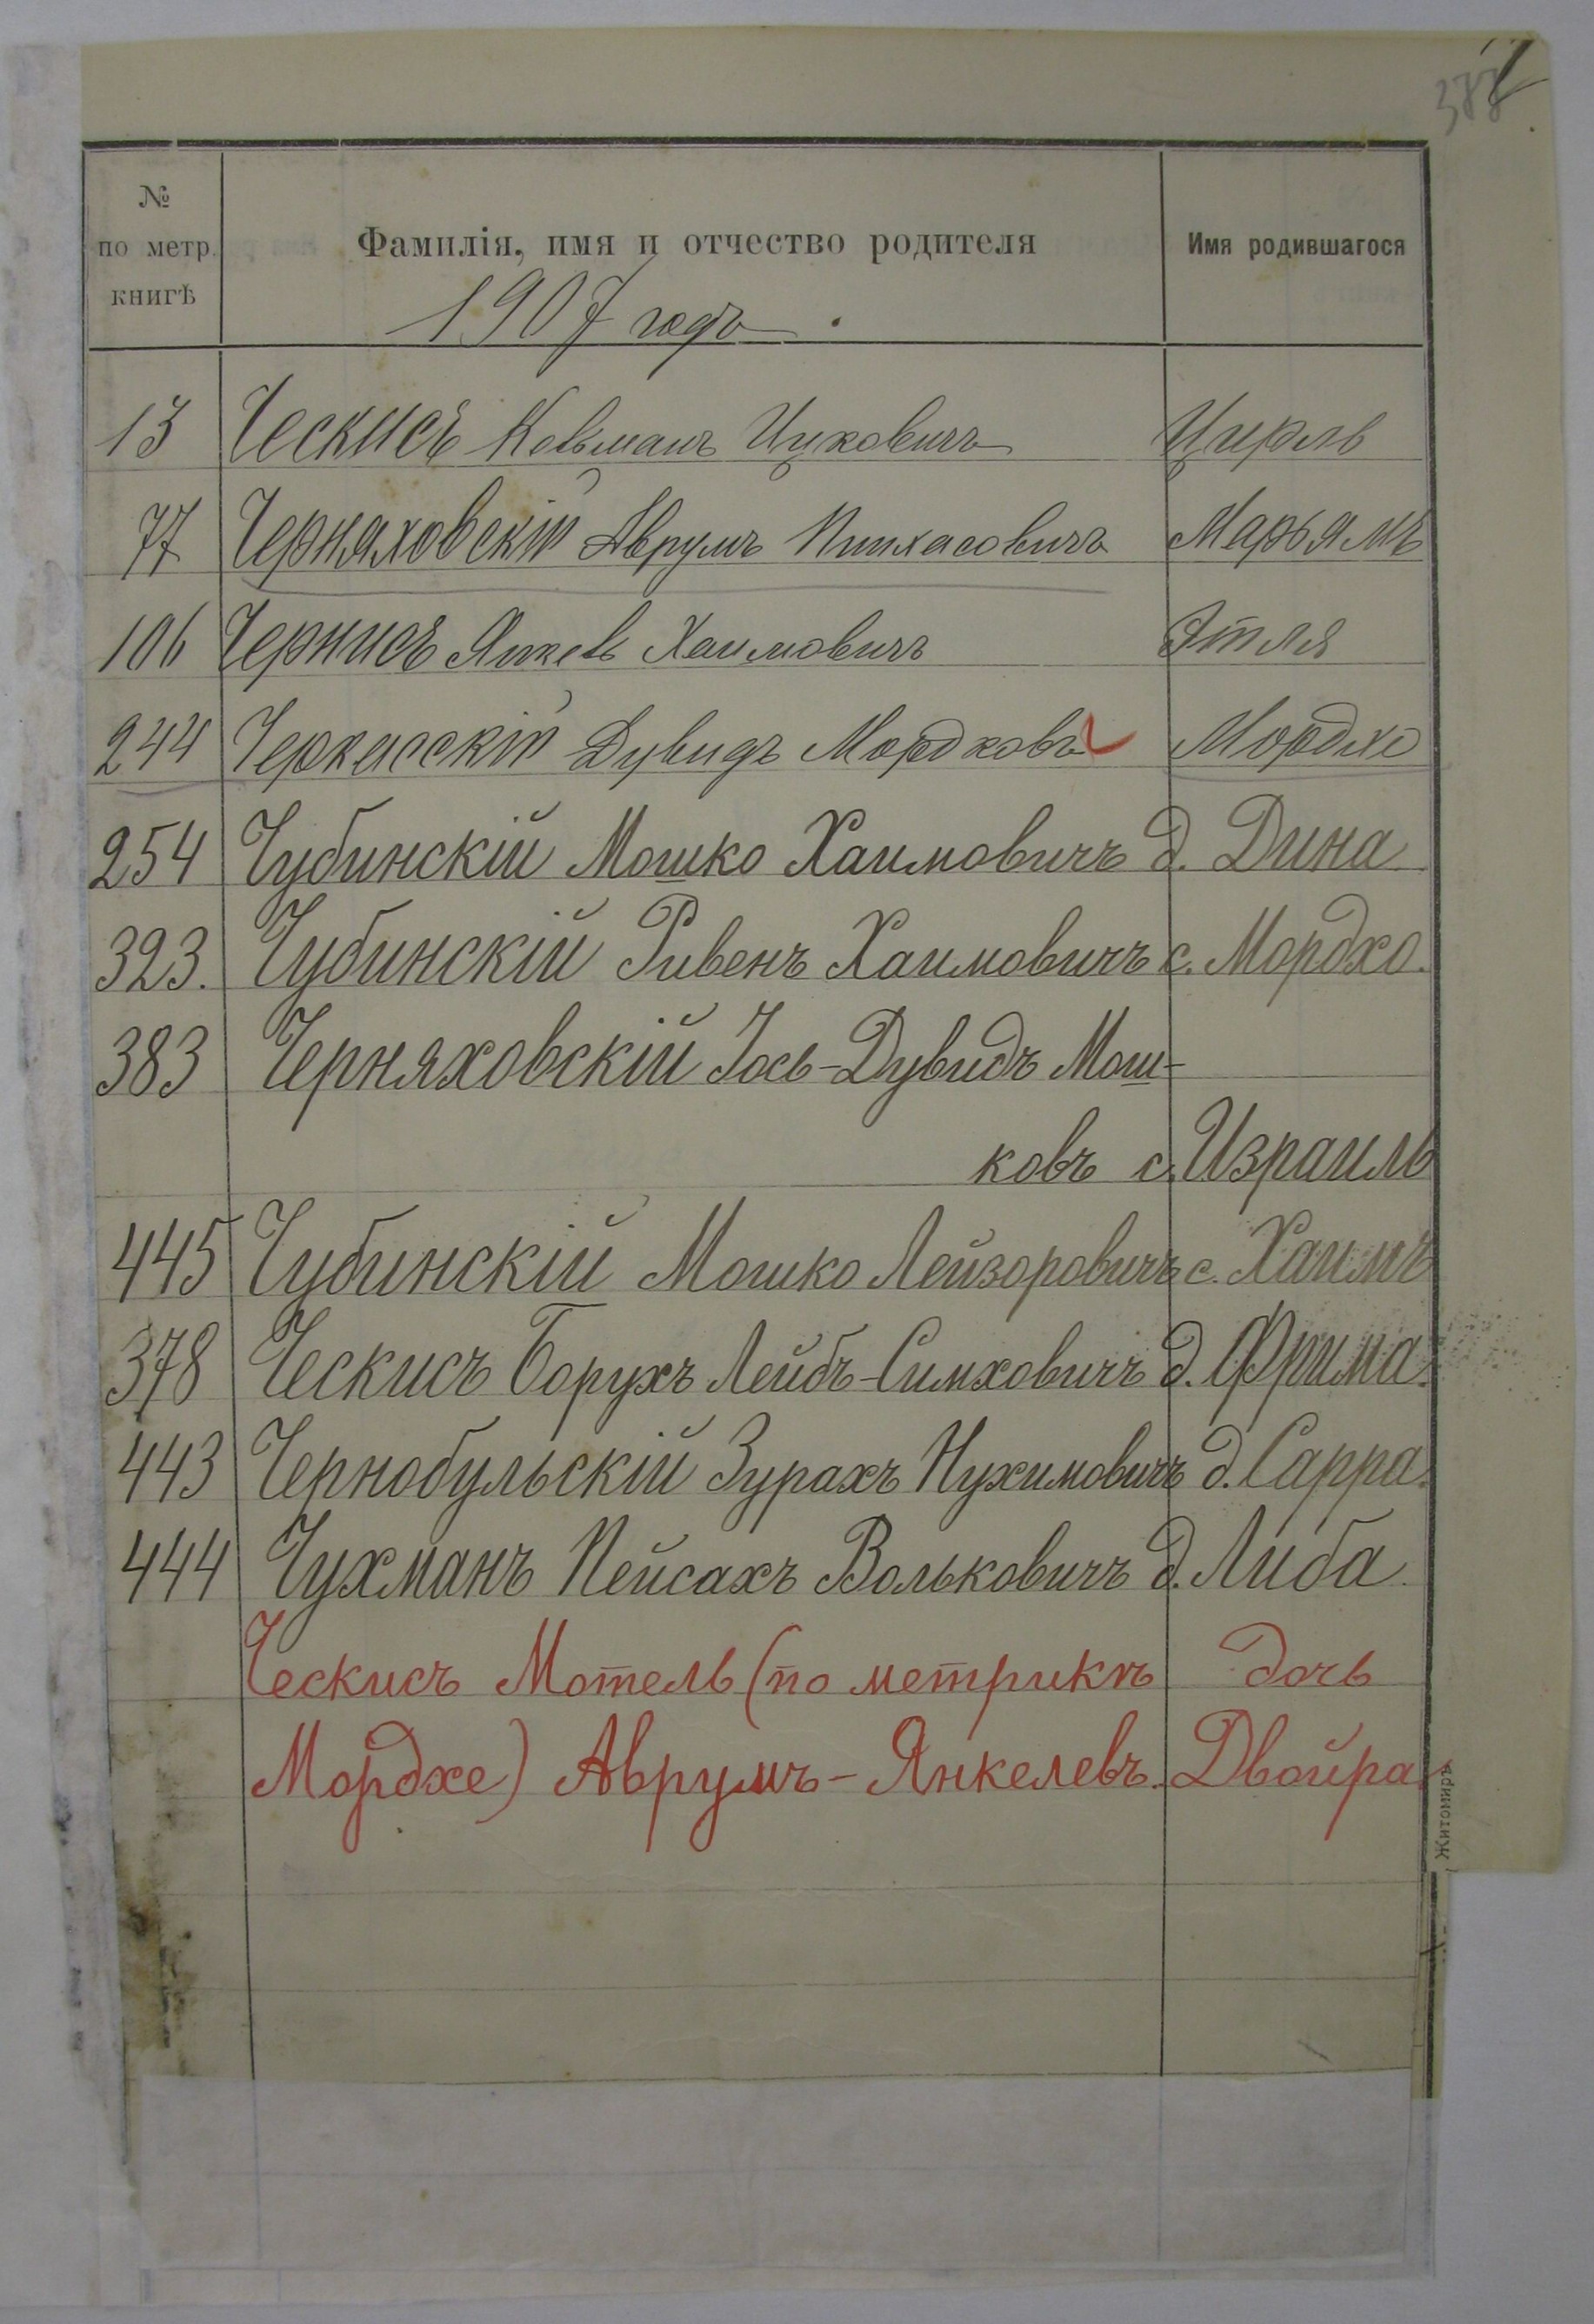 388
№
по метр.
книгѣ
Фамилія, имя и отчество родителя
Имя родившагося
1907 годъ
13 Ческисъ Кельманъ Ицковичъ Цирль
77 Черняховскій Аврумъ Пинхасовичъ Марьямъ
106 Чернисъ Янкель Хаимовичъ Этля
244 Черкасскій Дувидъ Мордковъ Мордхе
254 Чубинскій Мошко Хаимовичъ д. Дина
323. Чубинскій Ривенъ Хаимовичъ с. Мордхо.
383 Черняховскій Іось-Дувидъ Мош-
ковъ с. Израиль
445 Чубинскій Мошко Лейзоровичъ с. Хаимъ
378 Ческисъ Борухъ Лейбъ-Симховичъ д. Фрима.
443 Чернобульскій Зурахъ Нухимовичъ д. Сарра.
444 Чухманъ Пейсахъ Вольковичъ д. Либа.
Ческисъ Мотель (по метрикѣ дочь
Мордхе) Аврумъ-Янкелевъ. Двойра
Житомиръ